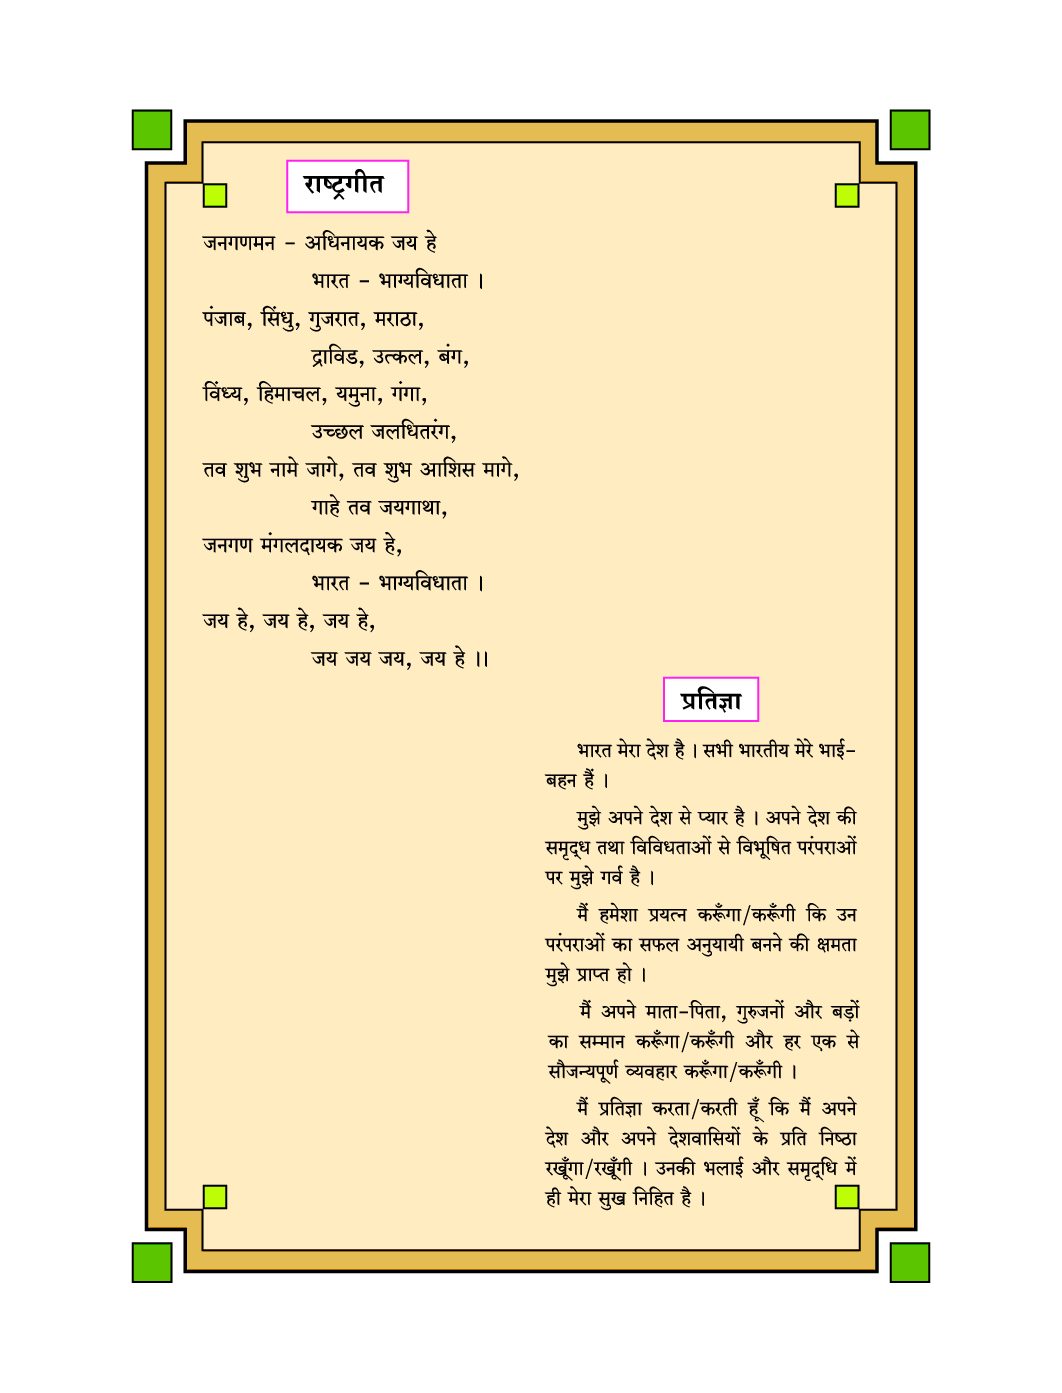 राष्ट्रगीत
जनगणमन - अधिनायक जय हे
भारत - भाग्यविधाता ।
पंजाब, सिंधु, गुजरात, मराठा,
द्राविड, उत्कल, बंग,
विंध्य, हिमाचल, यमुना, गंगा,
उच्छल जलधितरंग,
तव शुभ नामे जागे, तव शुभ आशिस मागे,
गाहे तव जयगाथा,
जनगण मंगलदायक जय हे,
भारत - भाग्यविधाता ।
जय हे, जय हे, जय हे,
जय जय जय, जय हे ।।
प्रतिज्ञा
भारत मेरा देश है । सभी भारतीय मेरे भाई-
बहन हैं ।
मुझे अपने देश से प्यार है । अपने देश की
समृद्ध तथा विविधताओं से विभूषित परंपराओं
पर मुझे गर्व है ।
मैं हमेशा प्रयत्न करूँगा/करूँगी कि उन
परंपराओं का सफल अनुयायी बनने की क्षमता
मुझे प्राप्त हो ।
मैं अपने माता-पिता, गुरुजनों और बड़ों
का सम्मान करूँगा/करूँगी और हर एक से
सौजन्यपूर्ण व्यवहार करूँगा/करूँगी ।
मैं प्रतिज्ञा करता/करती हूँ कि मैं अपने
देश और अपने देशवासियों के प्रति निष्ठा
रखूँगा/रखूँगी । उनकी भलाई और समृद्धि में
ही मेरा सुख निहित है ।